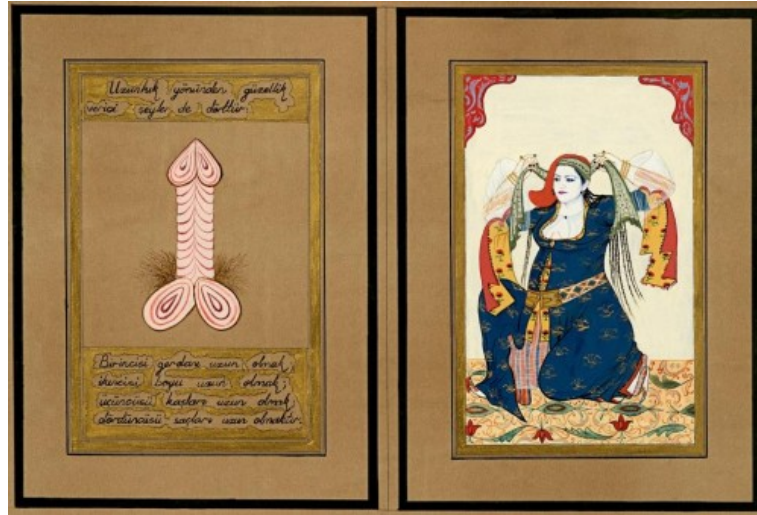 Uzunluk yönünden güzellik
verici şeyler de dörttür.
Birincisi gerdanı uzun olmak;
ikincisi boyu uzun olmak;
üçüncüsü kaşları uzun olmak;
dördüncüsü saçları uzun olmaktır.